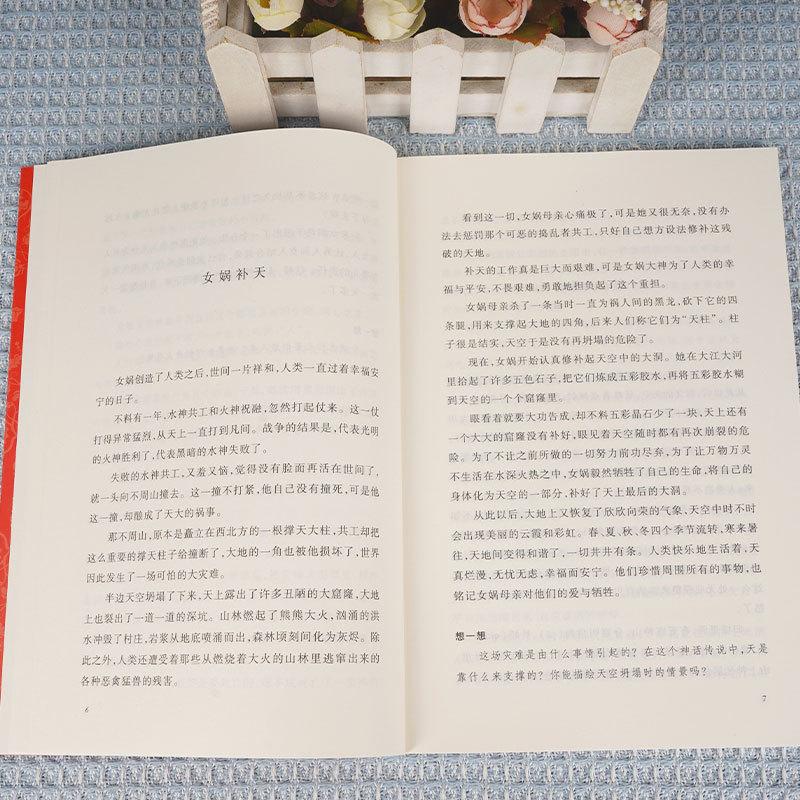 女娲补天
女娲创造了人类之后，世间一片祥和，人类一直过着幸福安
宁的日子。
不料有一年，水神共工和火神祝融，忽然打起仗来。这一仗
打得异常猛烈，从天上一直打到凡间。战争的结果是，代表光明
的火神胜利了，代表黑暗的水神失败了。
失败的水神共工，又羞又恼，觉得没有脸面再活在世间了，
就一头向不周山撞去。这一撞不打紧，他自己没有撞死，可是他
这一撞，却酿成了天大的祸事。
那不周山，原本是矗立在西北方的一根撑天大柱，共工却把
这么重要的撑天柱子给撞断了，大地的一角也被他损坏了，世界
因此发生了一场可怕的大灾难。
半边天空坍塌了下来，天上露出了许多丑陋的大窟窿，大地
上也裂出了一道一道的深坑。山林燃起了熊熊大火，汹涌的洪
水冲毁了村庄，岩浆从地底喷涌而出，森林顷刻间化为灰烬。除
此之外，人类还遭受着那些从燃烧着大火的山林里逃窜出来的
各种恶禽猛兽的残害。
6
看到这一切，女娲母亲心痛极了，可是她又很无奈，没有办
法去惩罚那个可恶的捣乱者共工，只好自己想方设法修补这残
破的天地。
补天的工作真是巨大而艰难，可是女娲大神为了人类的幸
福与平安，不畏艰难，勇敢地担负起了这个重担。
女娲母亲杀了一条当时一直为祸人间的黑龙，砍下它的四
条腿，用来支撑起大地的四角，后来人们称它们为“天柱”。柱
子很是结实，天空于是没有再坍塌的危险了。
现在，女娲开始认真修补起天空中的大洞。她在大江大河
里拾起了许多五色石子，把它们炼成五彩胶水，再将五彩胶水糊
到天空的一个个窟窿里。
眼看着就要大功告成，却不料五彩晶石少了一块，天上还有
一个大大的窟窿没有补好，眼见着天空随时都有再次崩裂的危
险。为了不让之前所做的一切努力前功尽弃，为了让万物万灵
不生活在水深火热之中，女娲毅然牺牲了自己的生命，将自己的
身体化为天空的一部分，补好了天上最后的大洞。
从此以后，大地上又恢复了欣欣向荣的气象，天空中时不时
会出现美丽的云霞和彩虹。春、夏、秋、冬四个季节流转，寒来暑
往，天地间变得和谐了，一切井井有条。人类快乐地生活着，天
真烂漫，无忧无虑，幸福而安宁。他们珍惜周围所有的事物，也
铭记女娲母亲对他们的爱与牺牲。
想一想
这场灾难是由什么事情引起的？在这个神话传说中，天是
靠什么来支撑的？你能描绘天空坍塌时的情景吗？
7